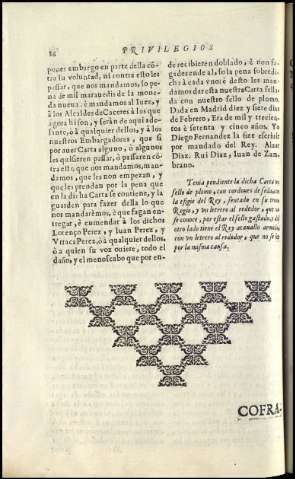 24 PRIVILEGIOS
poner embargo en parte della cõ-
tra su voluntad, ni contra esto les
passar, que nos mandamos, so pe-
na de mil marauedis de la mone-
da nueua. è mandamos al Iuez, y
à los Alcaldes de Caceres à los que
agora hi son, y seràn de aqui ade-
lante, ò à qualquier dellos, y à los
nuestros Embargadores, que si
por nuestra Carta alguno, ò algunos
les quisieren passar, ò passaren cõ-
tra esto que nos mandamos, man-
damos, que les non empezan, y
que les prendan por la pena que
en la dicha Carta se contiene, y la
guarden para fazer della lo que
nos mandarèmos, è que fagan en-
tregar, è enmendar à los dichos
Lorenço Perez, y Iuan Perez, y
Vrraca Perez, ò à qualquier dellos,
ò à quien su voz ouiere, todo el
daño, y el menoscabo que por en-
de recibieren doblado, è non fa-
gades ende al, so la pena sobredi-
cha à cada vno: è desto les man-
damos dar esta nuestra Carta sella-
da con nuestro sello de plomo.
Dada en Madrid diez y siete dias
de Febrero, Era de mil y trecien-
tos è setenta y cinco años. Yo
Diego Fernandez la fize escriuir
por mandado del Rey. Aluar
Diaz. Rui Diaz, Iuan de Zam-
brano.
Tenia pendiente la dicha Carta un
sello de plomo, con cordones de seda
la efigie del Rey, sentado en su trono
Regio, y vn letrero al rededor, que no
se conoce, por estar el sello gastado: del
otro lado tiene el Rey acauallo armado
con vn letrero al rededor, que no se vè
por la misma causa.
COFRA-